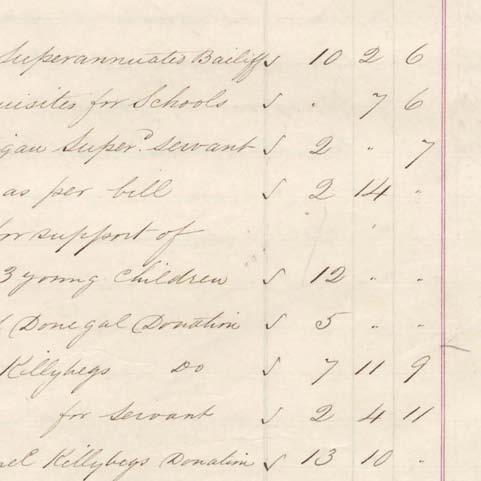 Superannuated Bailiff √ 10 2 6
uisites for Schools √ " 7 6
gan Super.d servant √ 2 " 7
as per bill √ 2 14 "
for support of
3 young children √ 12 " "
Donegal Donation √ 5 " "
Killybegs Do √ 7 11 9
for servant √ 2 4 11
el Killybegs Donation √ 13 10 "